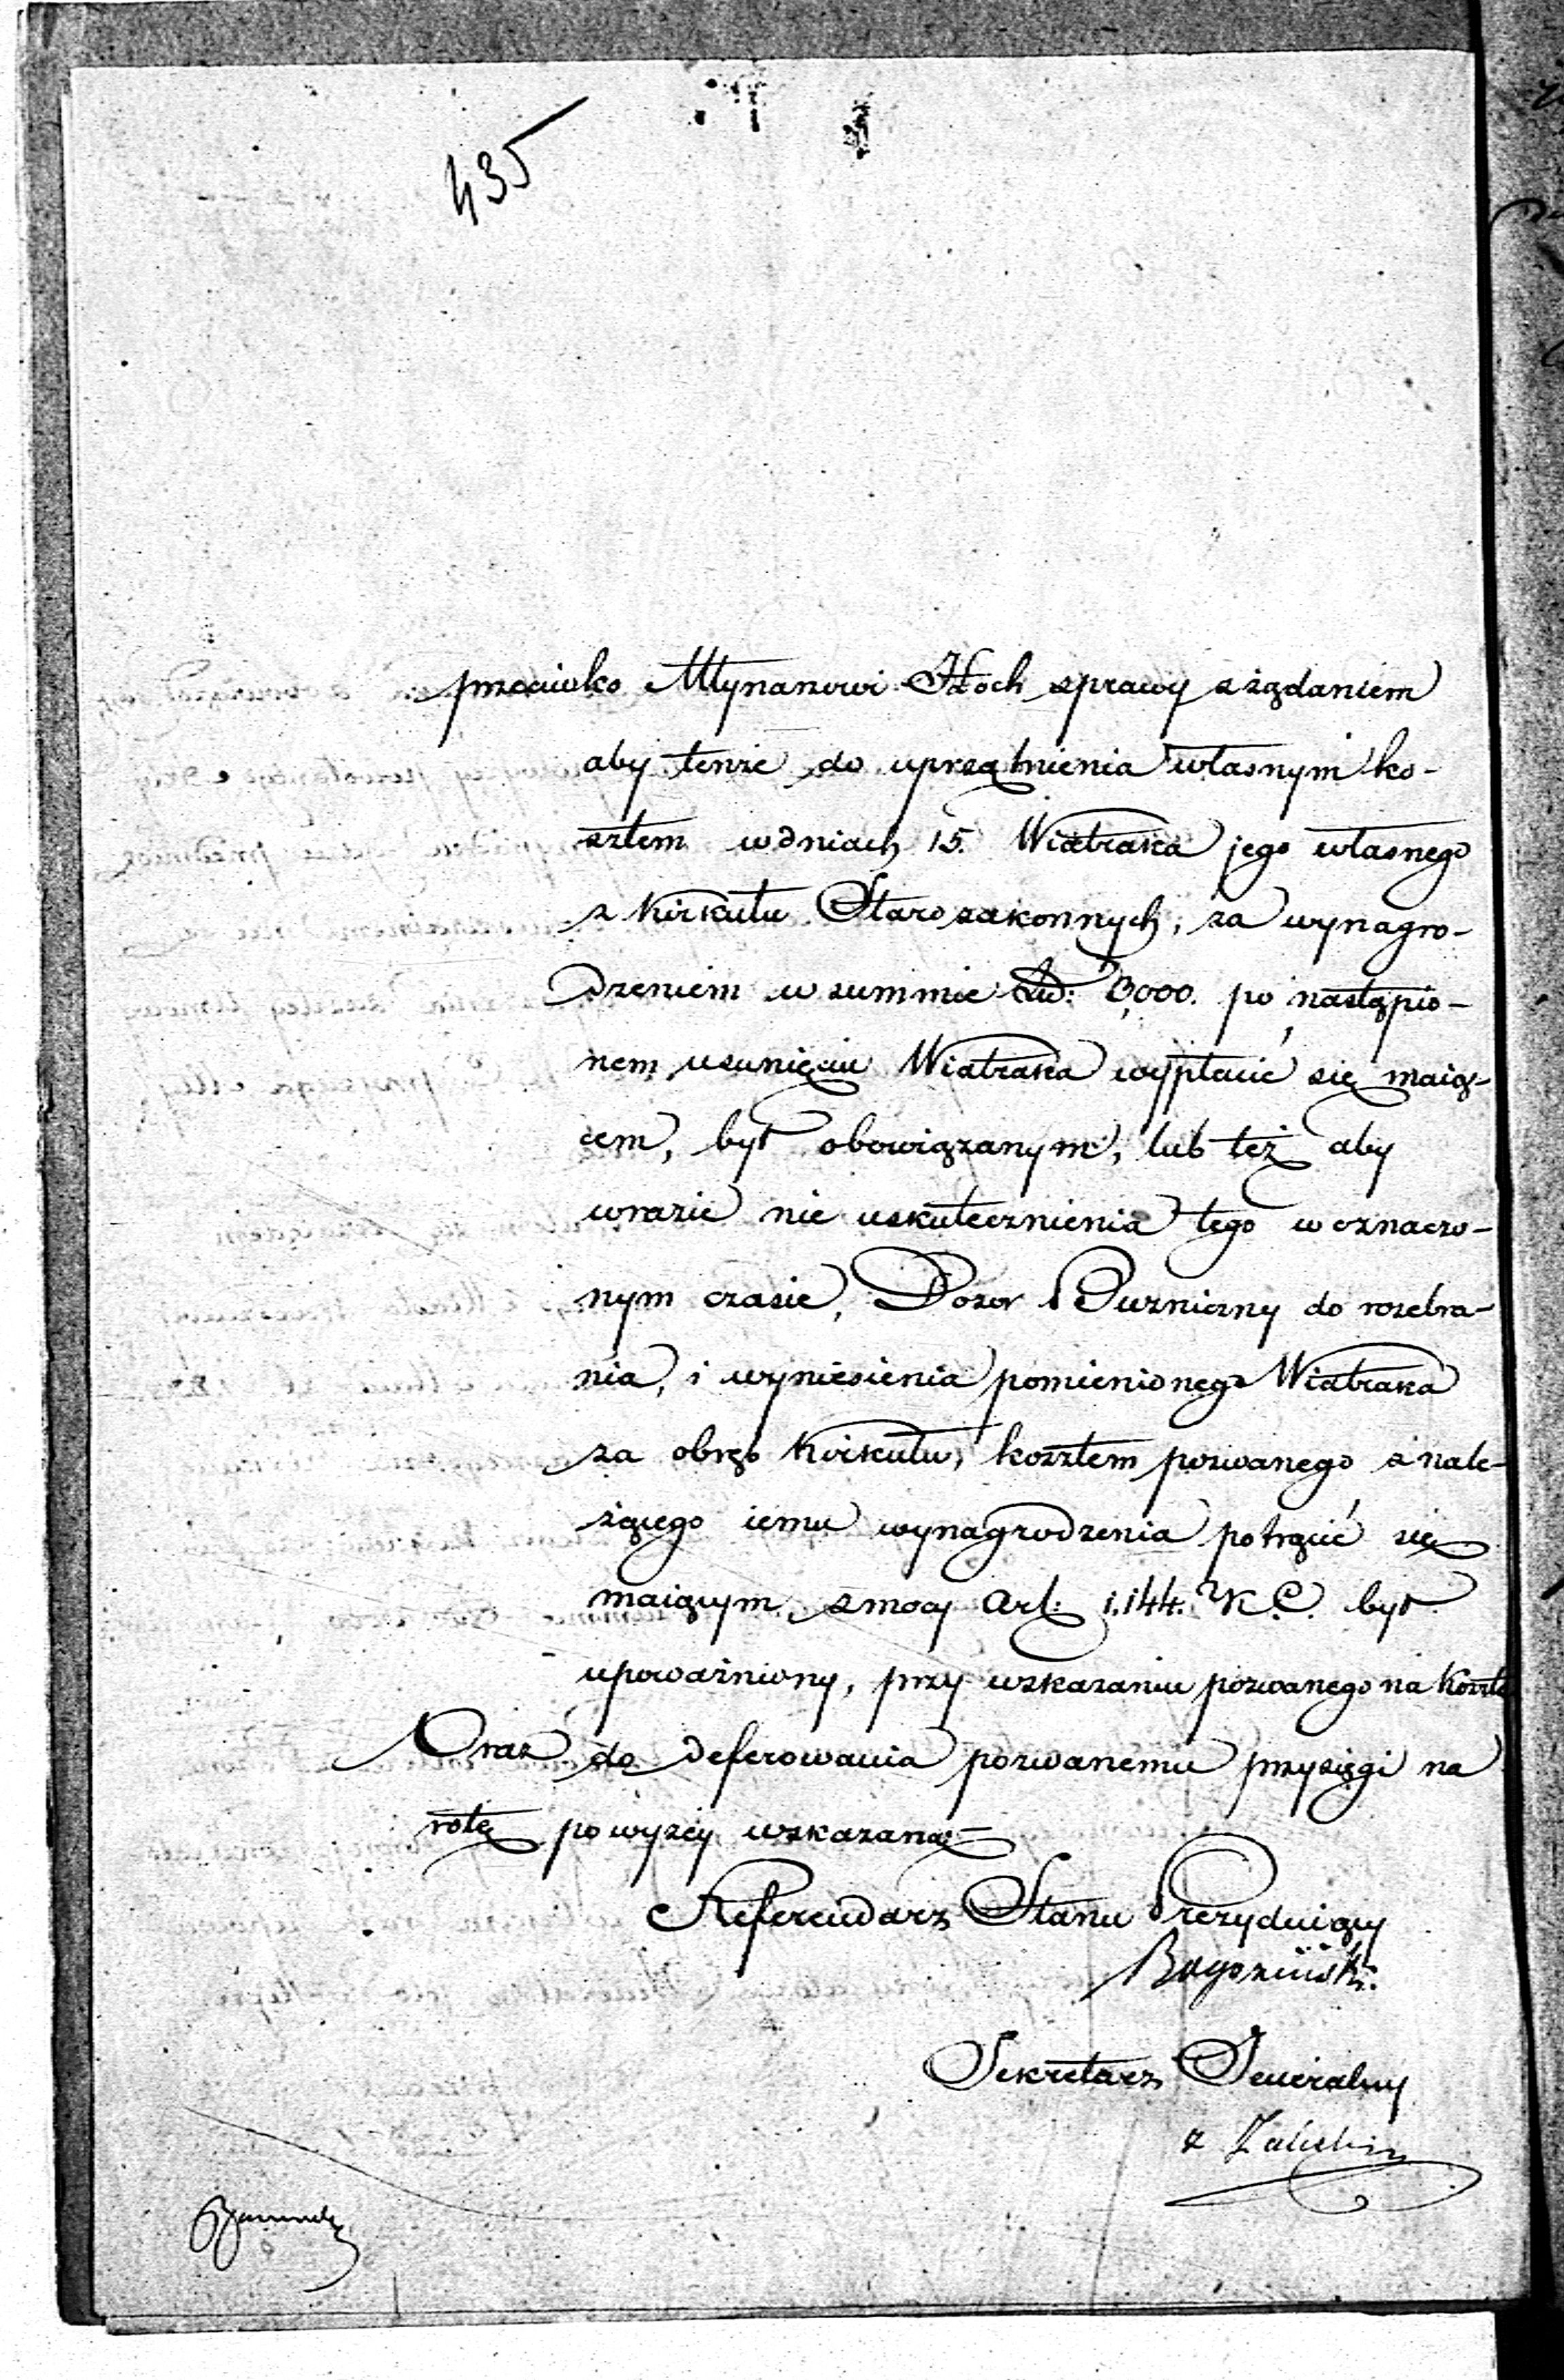 435
przeciwko Młynarzowi Hoch sprawy z żądaniem
aby tenże do uprzątnienia własnym ko-
sztem w dniach 15. Wiatraka jego własnego
z Kirkutu Starozakonnych, za wynagro-
dzeniem w summie 3,000. po nastąpio-
nem usunięciu Wiatraka wypłacić się maią-
cem, był obowiązanym, lub też aby
w razie nie uskutecznienia tego w oznaczo-
nym czasie, Dozor Bużniczny do rozebra-
nia, i wyniesienia pomienionego Wiatraka
za obręb Kirkutu, kosztem pozwanego z nale-
żącego iemu wynagrodzenia potrącić się
maiącym, z mocy Art: 1.144. K.C. był
upoważniony, przy wskazaniu pozwanego na Koszta
Oraz do deferowania pozwanemu przysięgi na
rotę powyżey wskazaną =
Referendarz Stanu Prezyduiący
Sekretarz Generalny